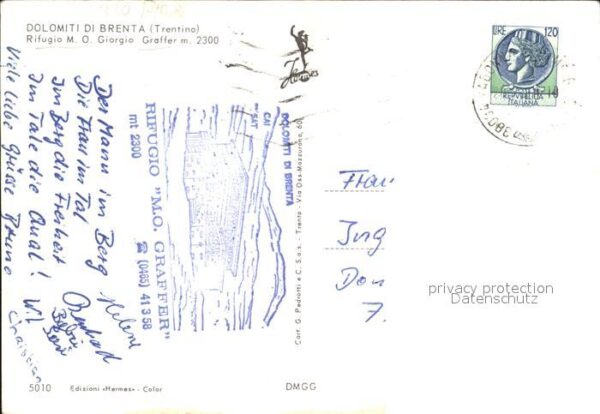 DOLOMITI DI BRENTA (Trentino)
Rifugio M. O. Giorgio Graffer m. 2300
Der Mann im Berg
Die Frau im Tal
Im Berg die Freiheit
Im Tale die Qual!
Viele liebe Grüsse
Helene
Christian
RIFUGIO "M.O. GRAFFER"
mt 2300
☎ (0465) 41358
CAI
SAT
DOLOMITI DI BRENTA
Cart. G. Pedrotti e C. S.a.s. - Trento - Via Oss-Mazzurana, 60
Hermes
LIRE 120
REPVBBLICA
ITALIANA
Frau
Ing
Don
7.
privacy protection
Datenschutz
5010
Edizioni «Hermes» - Color
DMGG